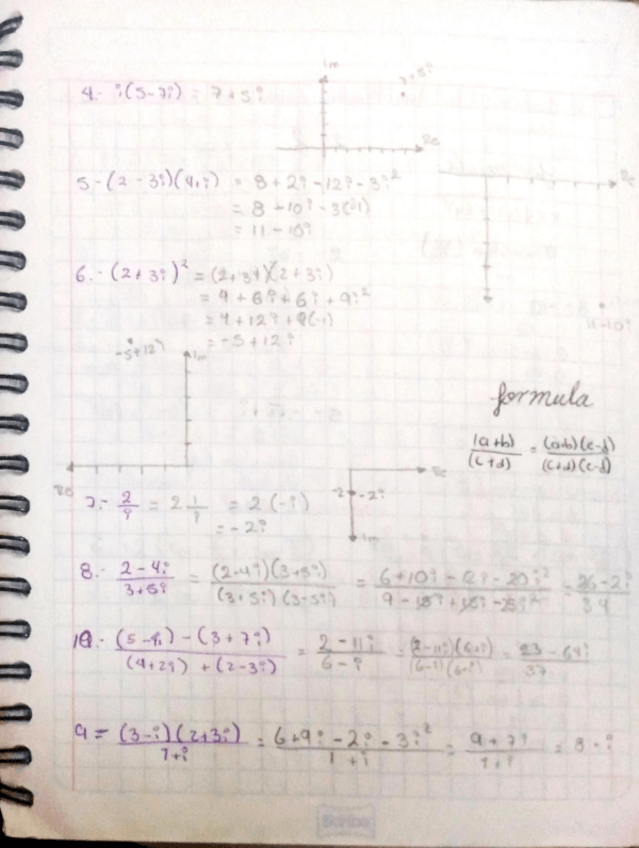 Im
7+5i
4.- i(5-7i) = 7+5i
Re
5-(2-3i)(4+i) = 8+2i-12i-3i²
= 8-10i-3(-1)
= 11-10i
Re
11-10i
6.-(2+3i)² = (2+3i)(2+3i)
= 4+6i+6i+9i²
= 4+12i+9(-1)
= -5+12i
-5+12i
Im
formula
(a+b)/(c+d) = (a+b)(c-d)/(c+d)(c-d)
7.- 2/i = 2 1/i = 2(-i)
= -2i
-2
-2i
Im
8.- 2-4i/3+5i = (2-4i)(3+5i)/(3+5i)(3-5i) = 6+10i-12i-20i²/9-15i+15i-25i² = 26-2i/34
10.- (5-4i)-(3+7i)/(4+2i)+(2-3i) = 2-11i/6-i = (2-11i)(6+i)/(6-i)(6+i) = 23-64i/37
9= (3-i)(2+3i)/1+i = 6+9i-2i-3i²/1+i = 9+7i/1+i = 8-i
Scribe